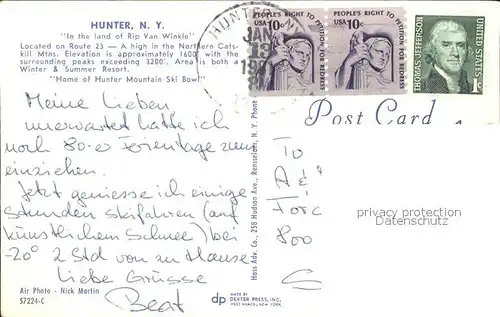 HUNTER, N. Y.
"In the land of Rip Van Winkle"
Located on Route 23 — A high in the Northern Cats-
kill Mtns. Elevation is approximately 1600' with the
surrounding peaks exceeding 3200'. Area is both a
Winter & Summer Resort.
"Home of Hunter Mountain Ski Bowl"
HUNTER
JAN
PEOPLE'S RIGHT TO
PETITION FOR REDRESS
USA 10c
PEOPLE'S RIGHT TO
PETITION FOR REDRESS
USA 10c
THOMAS JEFFERSON
UNITED STATES
1c
Post Card
Meine Lieben
unerwartet hatte ich
noch Ferientage zum
einziehen.
Jetzt geniesse ich einige
Stunden skifahren (auf
künstlichem Schnee) bei
-20° 2 Std von zu Hause
Liebe Grüsse
Beat
To
privacy protection
Datenschutz
800
Air Photo - Nick Martin
57224-C
Hass Adv. Co., 258 Hudson Ave., Rensselaer, N. Y. Phone
dp
MADE BY
DEXTER PRESS, INC.
WEST NYACK, NEW YORK